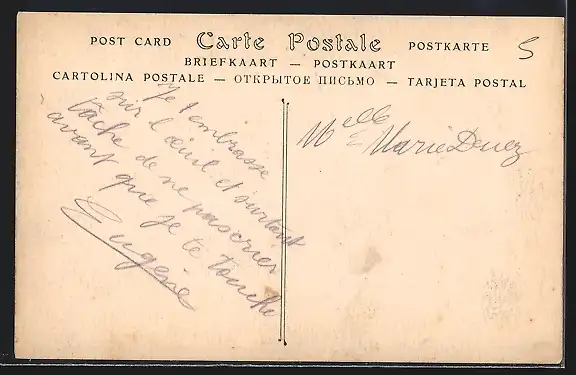 POST CARD Carte Postale POSTKARTE
BRIEFKAART — POSTKAART
CARTOLINA POSTALE — ОТКРЫТОЕ ПИСЬМО — TARJETA POSTAL
5
Je t embrasse
sur l œuil et surtout
tâche de ne pas crier
avant que je te touche
Eugène
Melle Marie Denez